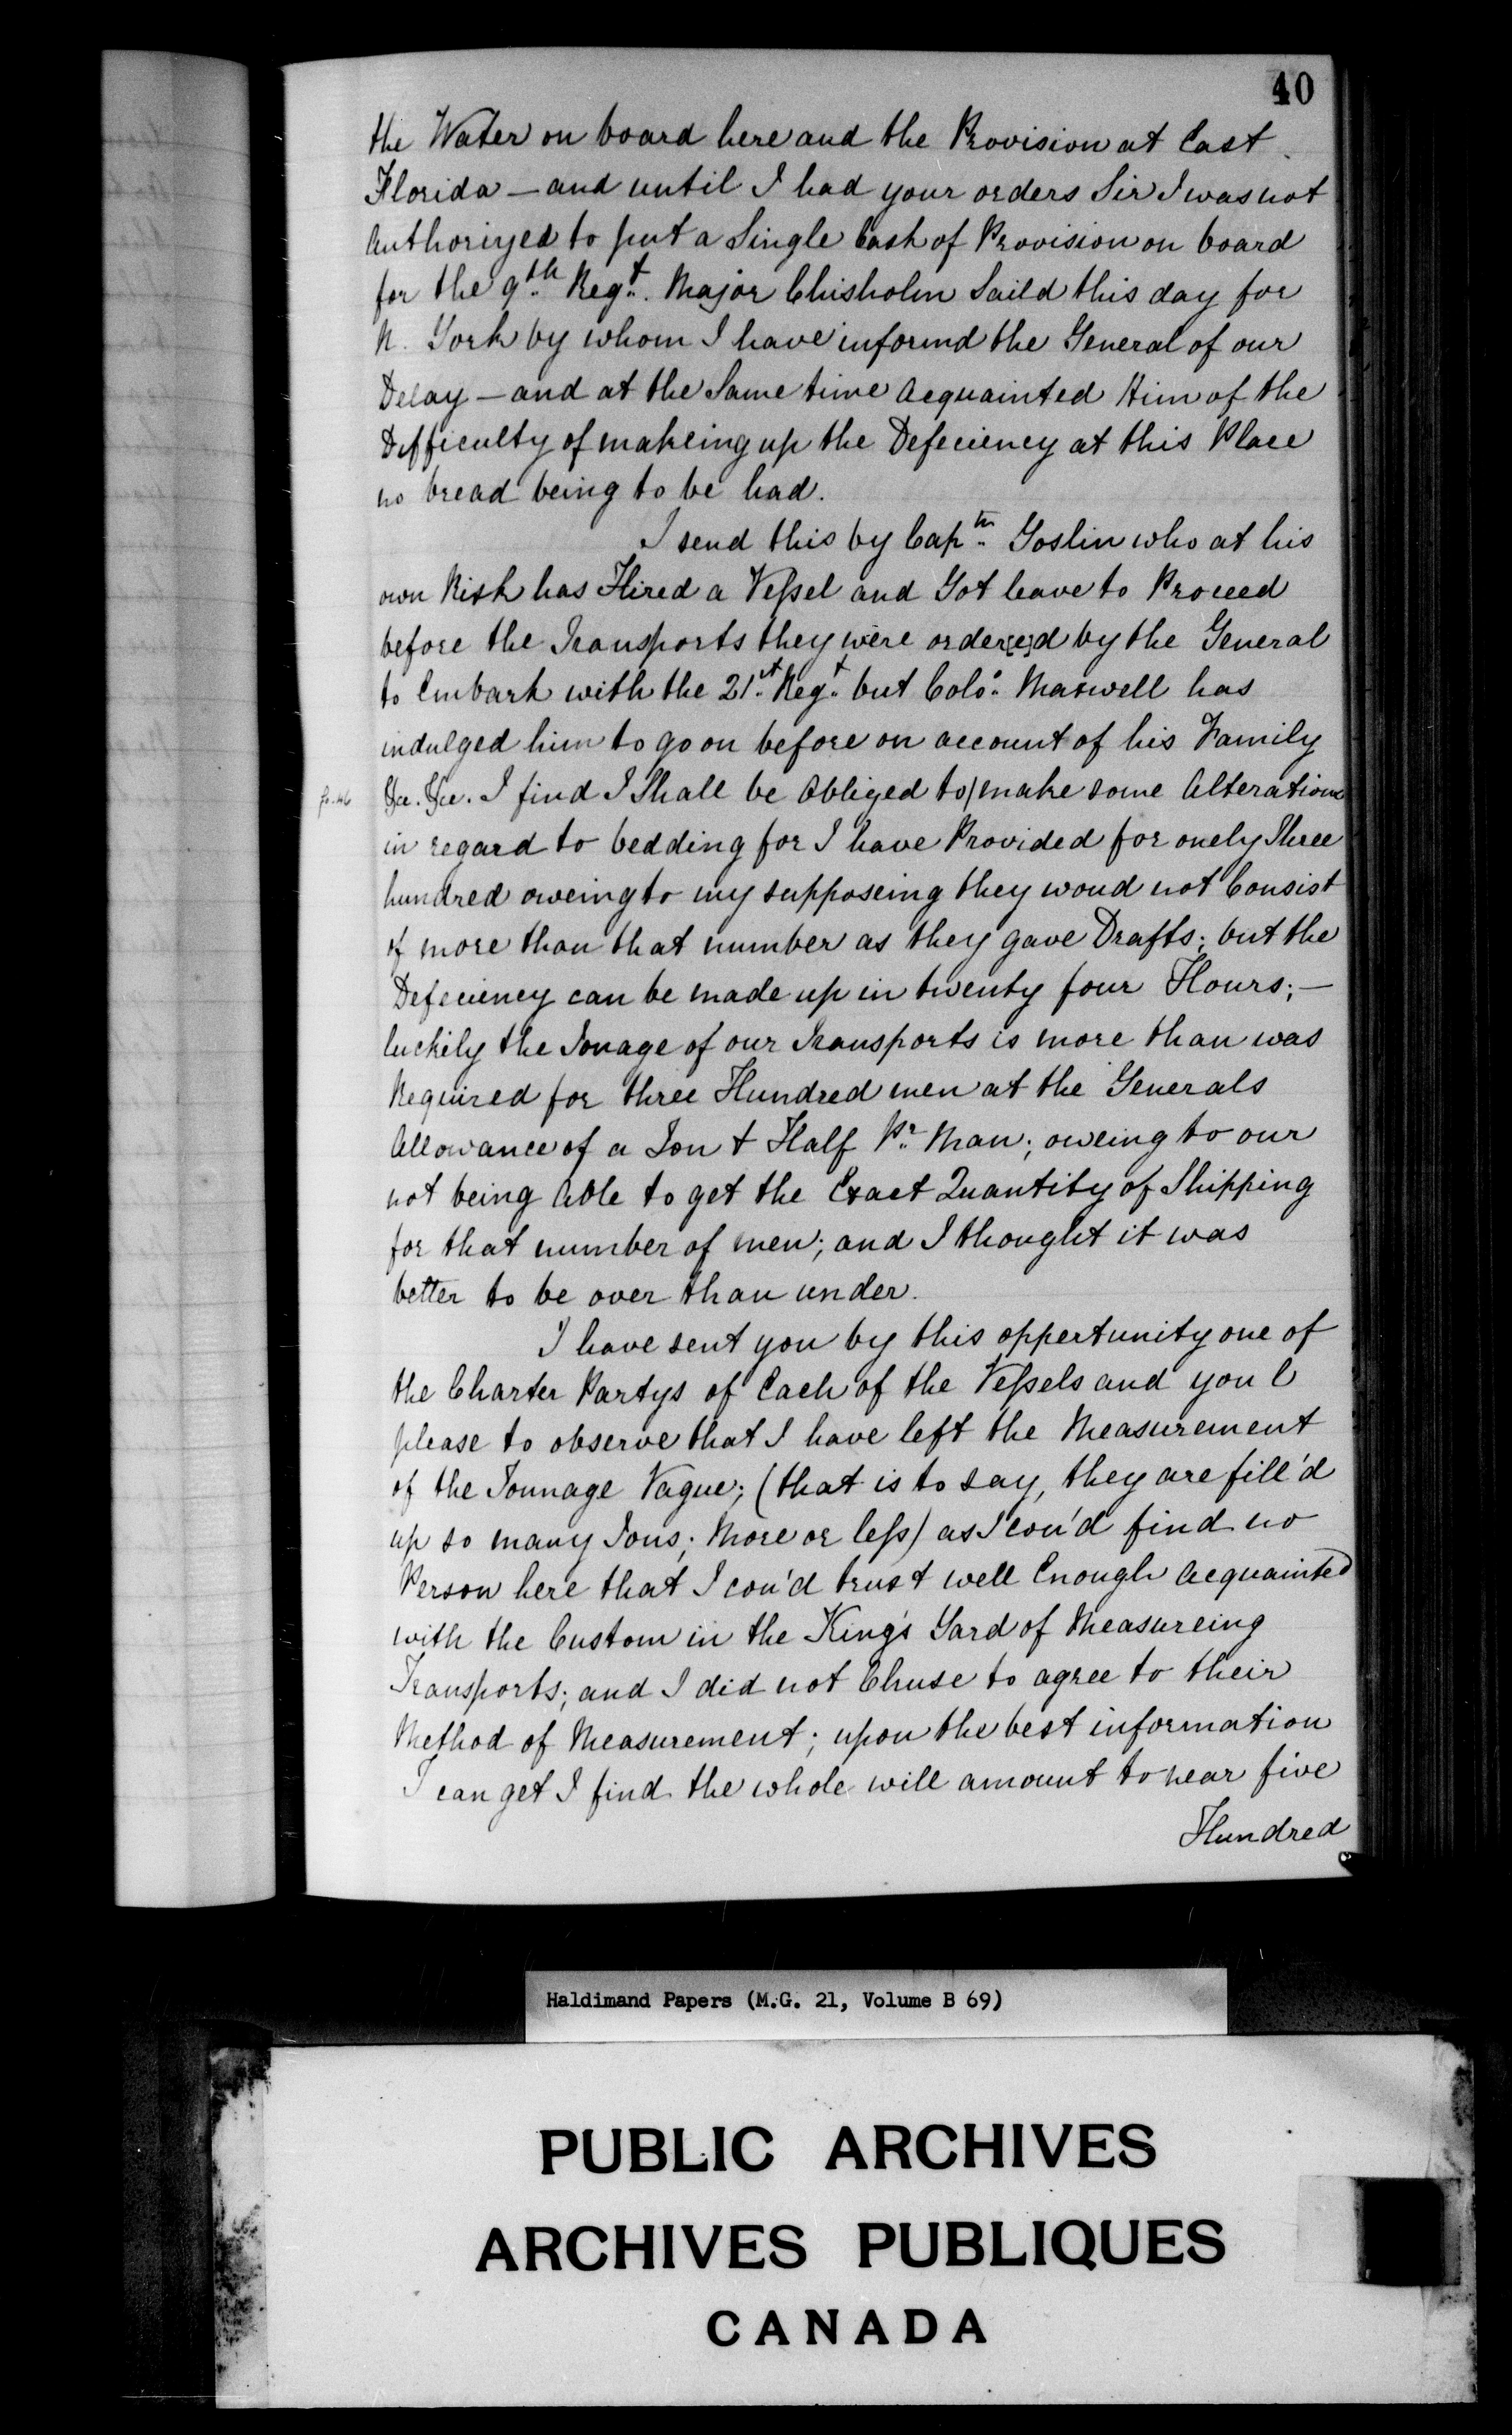 40
the Water on board here and the Provision at East
Florida — and until I had your orders Sir I was not
Authorized to put a Single Cask of Provision on board
for the 9th Regt. Major Chisholm Saild this day for
N. York by whom I have informd the General of our
Delay — and at the Same time Acquainted Him of the
Difficulty of makeing up the Defeciency at this Place
no bread being to be had.
I send this by Captn Goslin who at his
own Risk has Hired a Veſsel and Got leave to Proceed
before the Transports they were order[e]d by the General
to Embark with the 21st Regt but Colo. Maxwell has
indulged him to go on before on account of his Family
fo. 46 &c. &c. I find I Shall be Obliged to/make some Alterations
in regard to bedding for I have Provided for onely Three
hundred oweing to my supposeing they woud not Consist
of more than that number as they gave Drafts; but the
Defeciency can be made up in twenty four Hours; —
luckily the Tonage of our Transports is more than was
Required for three Hundred men at the Generals
Allowance of a Ton & Half Pr. Man; oweing to our
not being Able to get the Exact Quantity of Shipping
for that number of men; and I thought it was
better to be over than under.
I have sent you by this oppertunity one of
the Charter Partys of Each of the Veſsels and you l
please to observe that I have left the Measurement
of the Tonnage Vague; (that is to say, they are fill'd
up so many Tons; More or leſs) as I cou'd find no
Person here that I cou'd trust well Enough Acquainted
with the Custom in the King's Yard of Measureing
Transports; and I did not Chuse to agree to their
Method of Measurement; upon the best information
I can get I find the whole will amount to near five
Hundred
Haldimand Papers (M.G. 21, Volume B 69)
PUBLIC ARCHIVES
ARCHIVES PUBLIQUES
CANADA